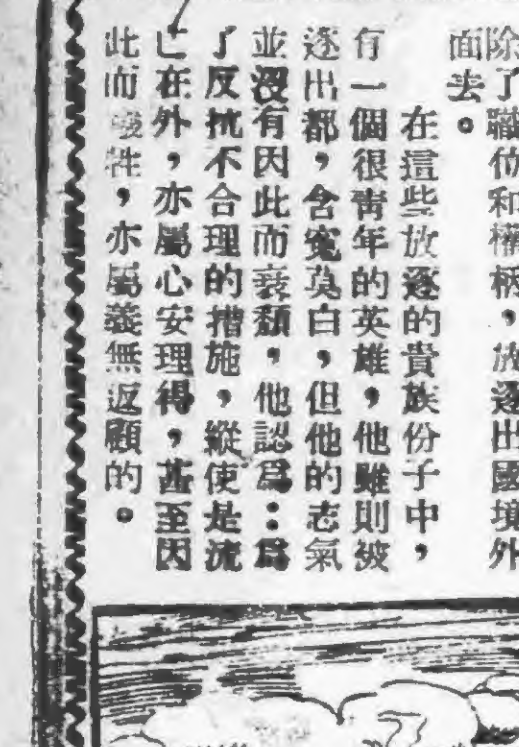 除了職位和權柄，放逐出國境外
面去。
在這些放逐的貴族份子中，
有一個很青年的英雄，他雖則被
逐出都，含寃莫白，但他的志氣
並沒有因此而衰頽，他認爲：爲
了反抗不合理的措施，縱使是流
亡在外，亦屬心安理得，甚至因
此而犧牲，亦屬義無返顧的。